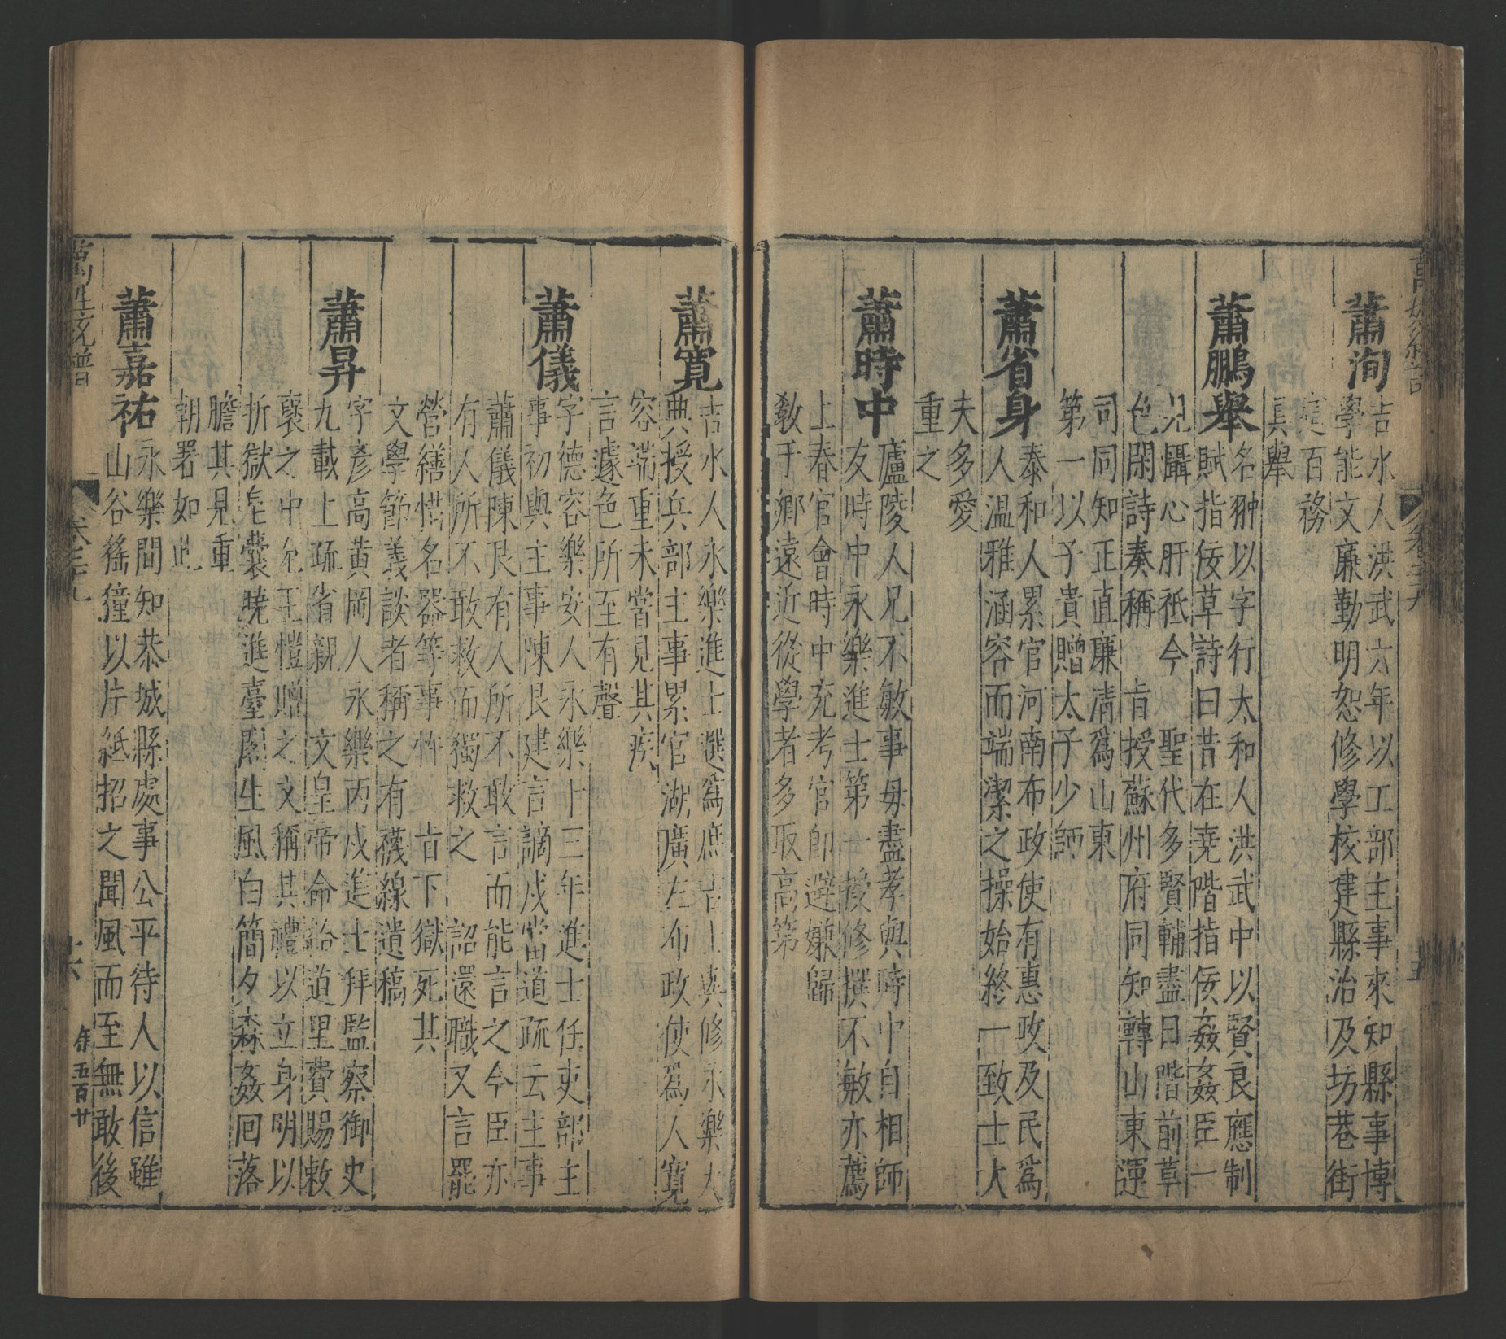 蕭洵
吉水人洪武六年以工部主事來知縣事博
學能文廉勤明恕修學校建縣治及坊巷街
百務
具舉
蕭鵬舉
名翀以字行太和人洪武中以賢良應制
賦指佞草詩曰昔在堯階指佞姦姦臣一
見懾心肝祇今聖代多賢輔盡日階前草
色閑詩奏稱旨授蘇州府同知轉山東運
司同知正直廉清爲山東
第一以子貴贈太子少師
蕭省身
泰和人累官河南布政使有惠政及民爲
人温雅涵容而端潔之操始終一致士大
夫多愛
重之
蕭時中
廬陵人兄不敏事母盡孝與時中自相師
友時中永樂進士第一授修撰不敏亦薦
上春官會時中充考官即避嫌歸
教于鄉遠近從學者多取高第
蕭寬
吉水人永樂進士選爲庶吉士與修永樂大
典授兵部主事累官湖廣左布政使爲人寬
容端重未嘗見其疾
言遽色所至有聲
蕭儀
字德容樂安人永樂十三年進士任吏部主
事初與主事陳艮建言謫戍當道疏云主事
蕭儀陳艮有人所不敢言而能言之今臣亦
有人所不敢救而獨救之詔還職又言罷
營繕惜名器等事忤旨下獄死其
文學節義談者稱之有襪線遺稿
蕭昇
字彥高黄岡人永樂丙戌進士拜監察御史
九載上疏省親文皇帝命給道里費賜敕
褒之中允王愷贈之文稱其禮以立身明以
折獄皂囊曉進臺閣生風白簡夕森姦回落
膽其見重
朝署如此
蕭嘉祐
永樂間知恭城縣處事公平待人以信雖
山谷徭獞以片紙招之聞風而至無敢後
萬姓統譜
卷三十九
十六